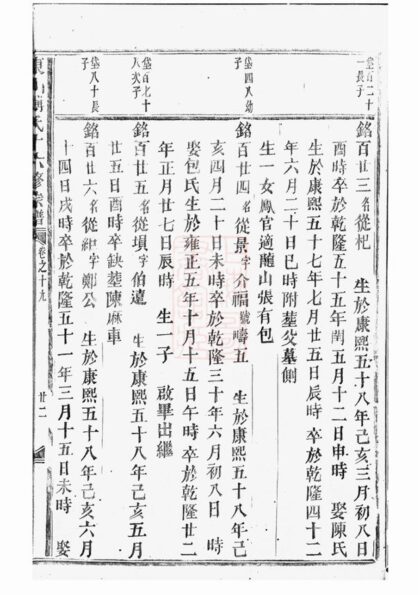 螢百二十一長子
銘百廿三名從杞　生於康熙五十八年己亥三月初八日
酉時卒於乾隆五十五年閏五月十二日申時　娶陳氏
生於康熙五十七年七月廿五日辰時　卒於乾隆四十二
年六月二十日巳時附塟父墓側
生一女鳳官適隨山張有包
螢四八幼子
銘百廿四名從景字介福號疇五　生於康熙五十八年己
亥四月二十日未時卒於乾隆三十年六月初八日　時
娶包氏生於雍正五年十月十五日午時卒於乾隆廿二
年正月廿七日辰時　生一子　啟畢出繼
螢百七十八次子
銘百廿五名從塤字伯遠　生於康熙五十八年己亥五月
廿五日酉時卒缺塟陳麻車
螢八十長子
銘百廿六名從字鄭公　生於康熙五十八年己亥六月
十四日戌時卒於乾隆五十一年三月十五日未時　娶
東山氏十六修宗譜　卷之十九　廿二